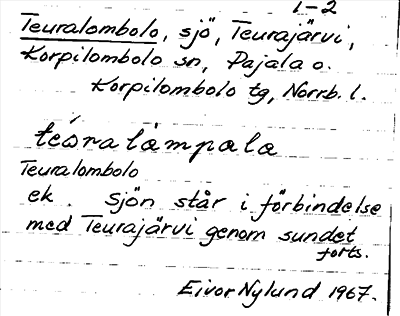 1-2
Teuralombolo, sjö, Teurajärvi,
Korpilombolo sn, Pajala o.
Korpilombolo tg, Norrb. l.
teóralåmpala
Teuralombolo
ek. Sjön står i förbindelse
med Teurajärvi genom sundet
forts.
Eivor Nylund 1967.